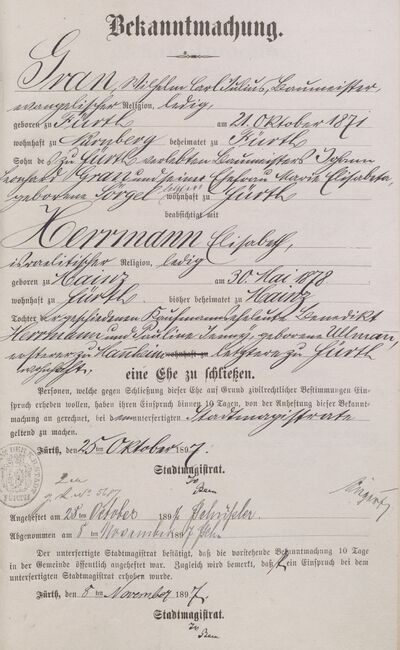 Bekanntmachung.
Gran, Wilhelm Carl Julius, Baumeister,
evangelischer Religion, ledig,
geboren zu Fürth am 21. Oktober 1871
wohnhaft zu Nürnberg beheimatet zu Fürth
Sohn des zu Fürth verlebten Baumeisters Johann
Leonhard Gran und seiner Ehefrau Marie Elisabeta,
geborene Sörgel wohnhaft zu Fürth
beabsichtigt mit
Herrmann Elisabeth,
israelitischer Religion, ledig
geboren zu Mainz am 30. Mai 1878
wohnhaft zu Fürth bisher beheimatet zu Mainz
Tochter der geschiedenen Kaufmannseheleute Benedikt
Herrmann und Pauline Jenny, geborene Ullmann,
ersterer zu wohnhaft zu letztere zu Fürth
wohnhaft.
eine Ehe zu schließen.
Personen, welche gegen Schließung dieser Ehe auf Grund zivilrechtlicher Bestimmungen Ein-
spruch erheben wollen, haben ihren Einspruch binnen 10 Tagen, von der Anheftung dieser Bekannt-
machung an gerechnet, bei dem unterfertigten Stadtmagistrate
geltend zu machen.
Fürth, den 25. Oktober 1897.
Stadtmagistrat.
Angeheftet am 25ten October 1897
Abgenommen am 8ten November 1897
Der unterfertigte Stadtmagistrat bestätigt, daß die vorstehende Bekanntmachung 10 Tage
in der Gemeinde öffentlich angeheftet war. Zugleich wird bemerkt, daß kein Einspruch bei dem
unterfertigten Stadtmagistrat erhoben wurde.
Fürth, den 8ten November 1897.
Stadtmagistrat.